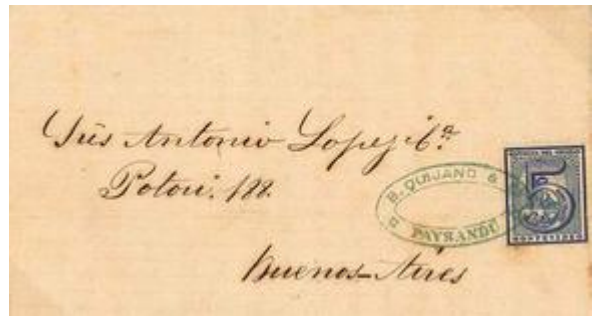 Sres Antonio Lopez y Cª
Potosi. 188.
B. QUIJANO &
PAYSANDÚ
5
MONTEVIDEO
Buenos-Aires